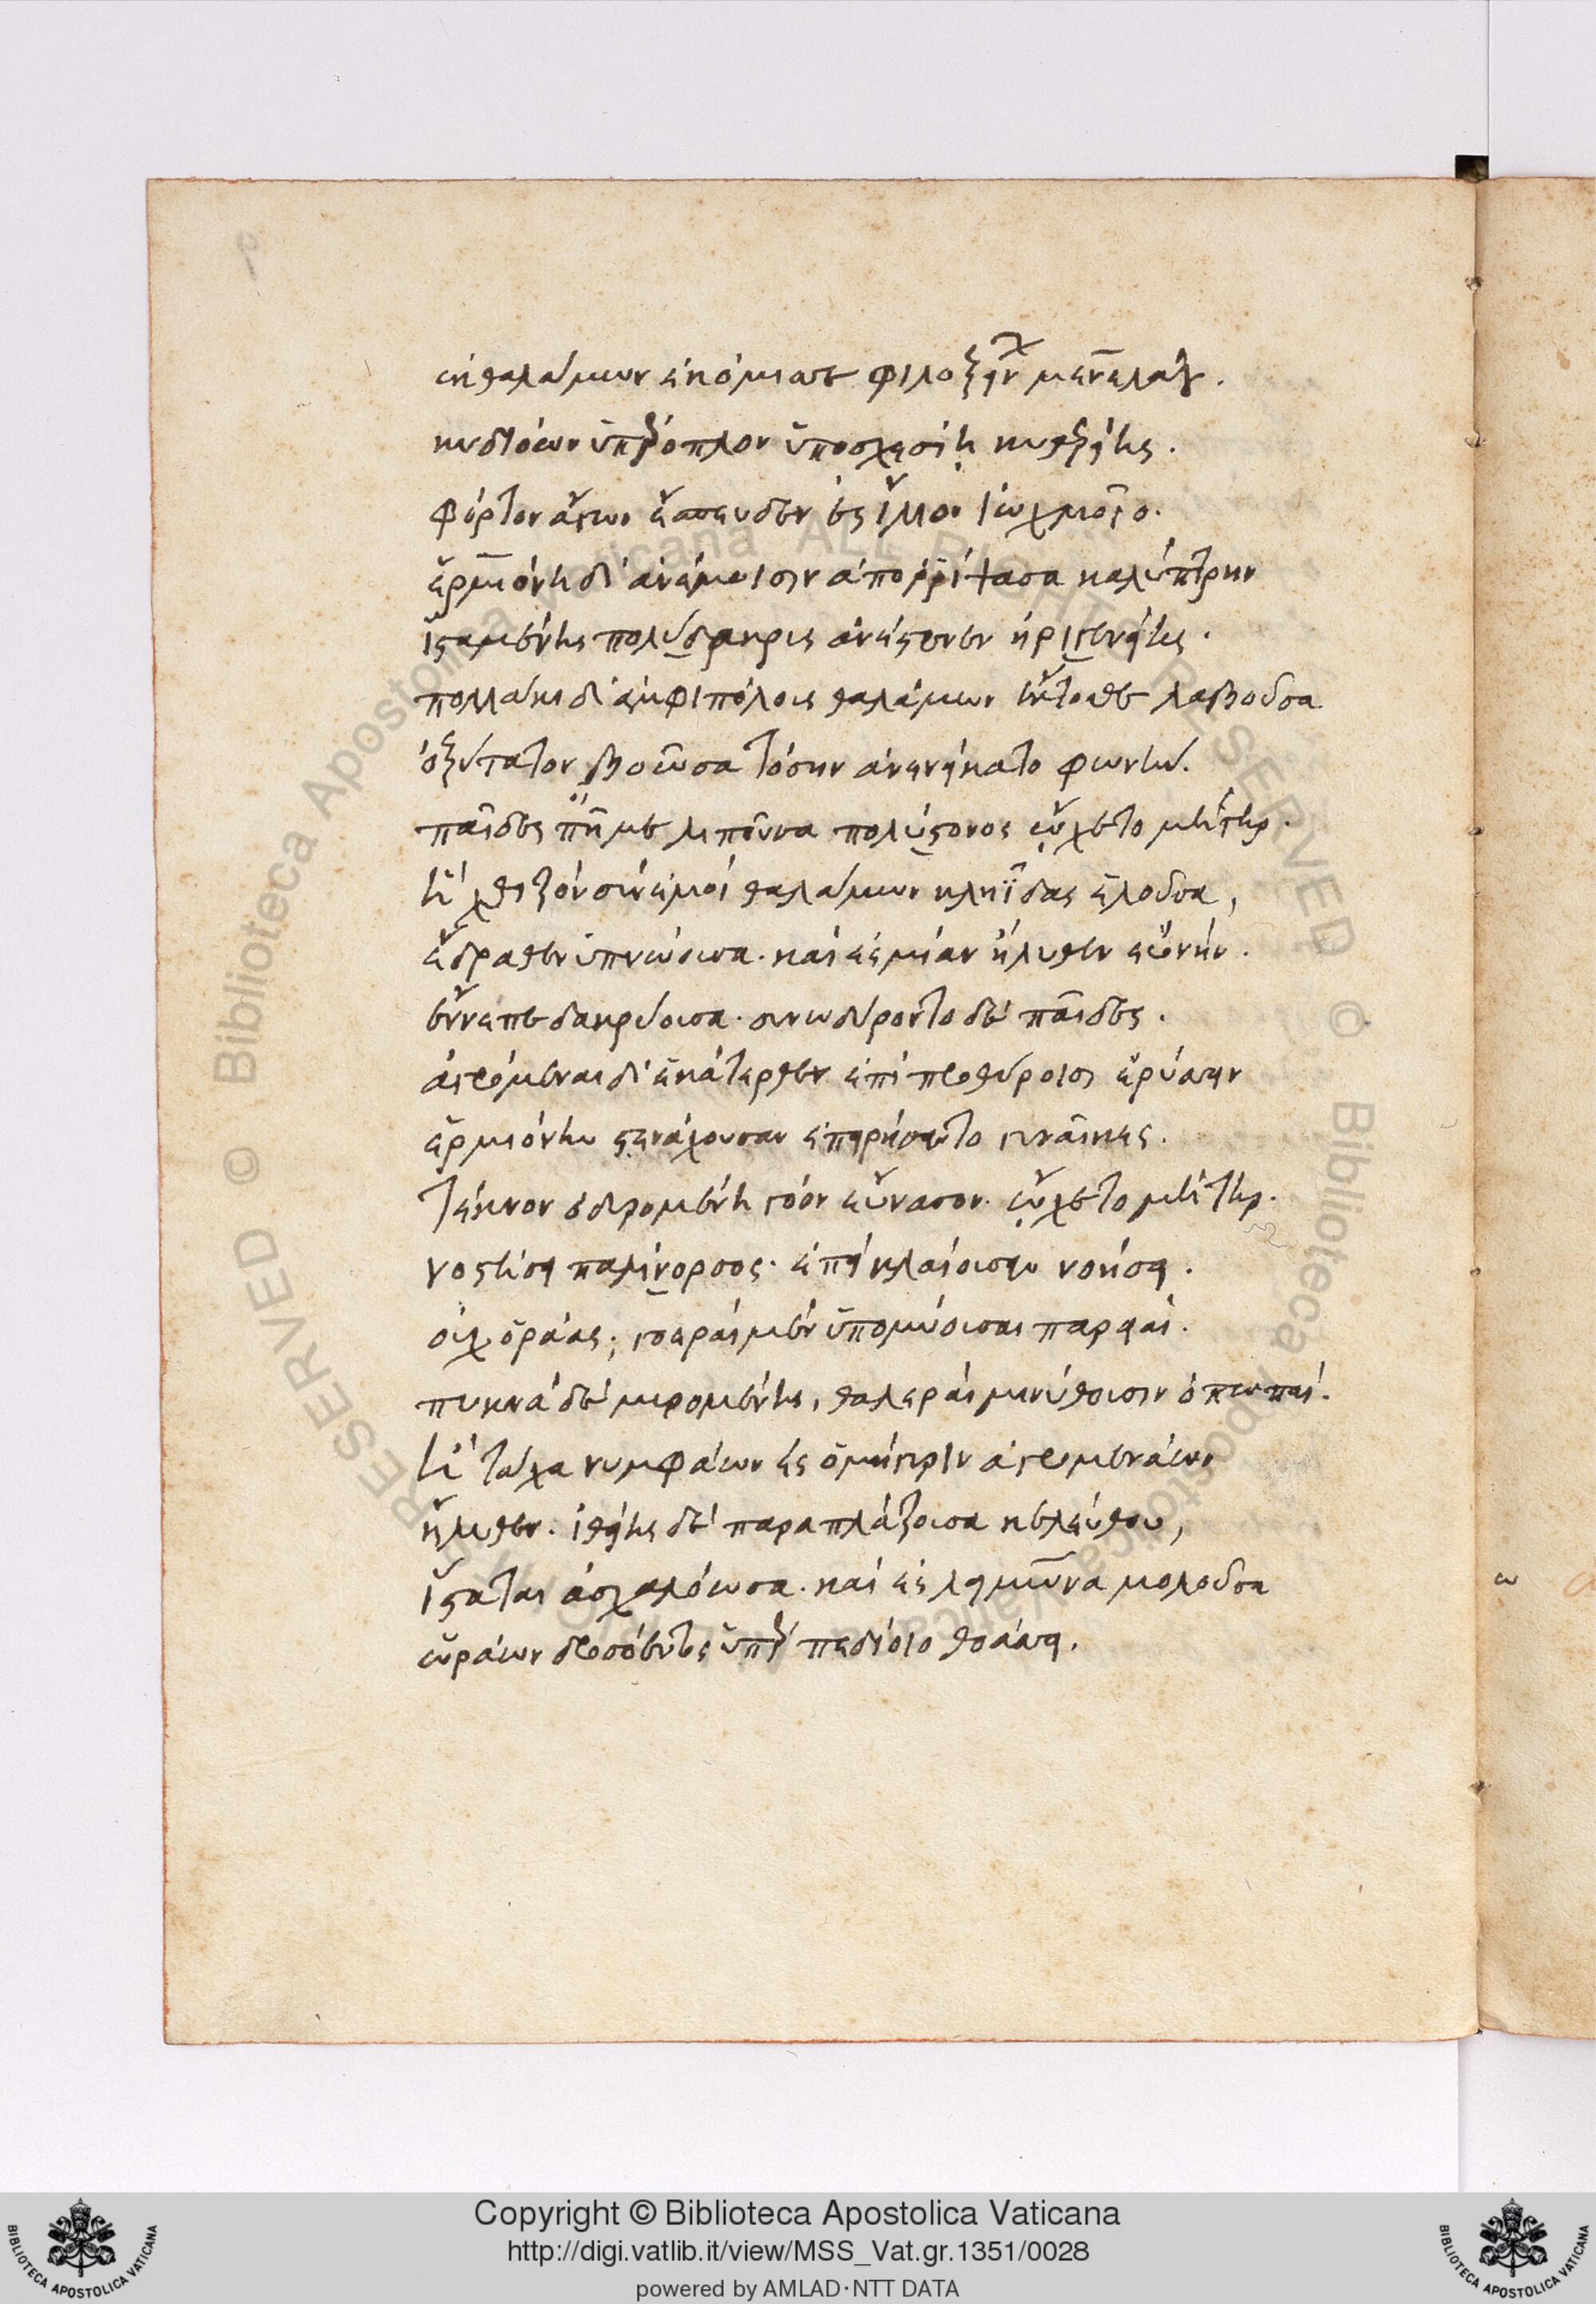 ἐκ θαλάμων ἐκόμισσε φιλοξείνου μενελάου.
κυδιόων ὑπέροπλον ὑποσχεσίῃ κυθερείης.
φόρτον ἄγων ἔσπευδεν ἐς ἴλιον ἰωχμοῖο.
ἑρμιόνη δ' ἀνέμοισιν ἀπορρίψασα καλύπτρην
ἱσταμένης πολύδακρυς ἀνέστενεν ἠριγενείης.
πολλάκι δ' ἀμφιπόλους θαλάμων ἔκτοσθε λαβοῦσα
ὀξύτατον βοόωσα τόσην ἀνενείκατο φωνήν.
παῖδες πῆ με λιποῦσα πολύστονος ᾤχετο μήτηρ.
ἣ χθιζὸν σὺν ἐμοὶ θαλάμων κληῗδας ἑλοῦσα,
ἔδραθεν ὑπνώουσα. καὶ ἐς μίαν ἤλυθεν εὐνήν.
ἔννεπε δακρύουσα. συνωδύροντο δὲ παῖδες.
ἀγρόμεναι δ' ἑκάτερθεν ἐπὶ προθύροισιν ἐρύκειν
ἑρμιόνην στενάχουσαν ἐπειρήσαντο γυναῖκες.
τέκνον ὀδυρομένη γόον εὔνασον. ᾤχετο μήτηρ.
νοστήσει παλίνορσος. ἔτι κλαίουσα νοήσει.
οὐχ ὁράας; γοεραὶ μὲν ὑπομύουσαι παρειαί.
πυκνὰ δὲ μυρομένης, θαλεραὶ μινύθουσιν ὀπωπαί.
ἢ τάχα νυμφάων ἐς ὁμήγυριν ἀγρομενάων
ἤλυθεν. ἰθείης δὲ παραπλάζουσα κελεύθου,
ἵσταται ἀσχαλόωσα. καὶ ἐς λειμῶνα μολοῦσα
ὡράων δροσόεντος ὑπὲρ πεδίοιο θοάσσει.
Copyright © Biblioteca Apostolica Vaticana
http://digi.vatlib.it/view/MSS_Vat.gr.1351/0028
powered by AMLAD·NTT DATA